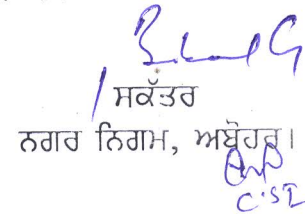 ਸਕੱਤਰ
ਨਗਰ ਨਿਗਮ, ਅਬੋਹਰ।
C.S.I